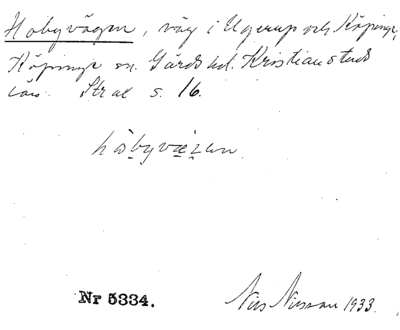 Hobyvägen, väg i Ugerup och Köpinge,
Köpinge sn. Gärds hd. Kristianstads
län. Str al s. 16.
håbyväzen
Nr 5334.
Nils Nilsson 1933.